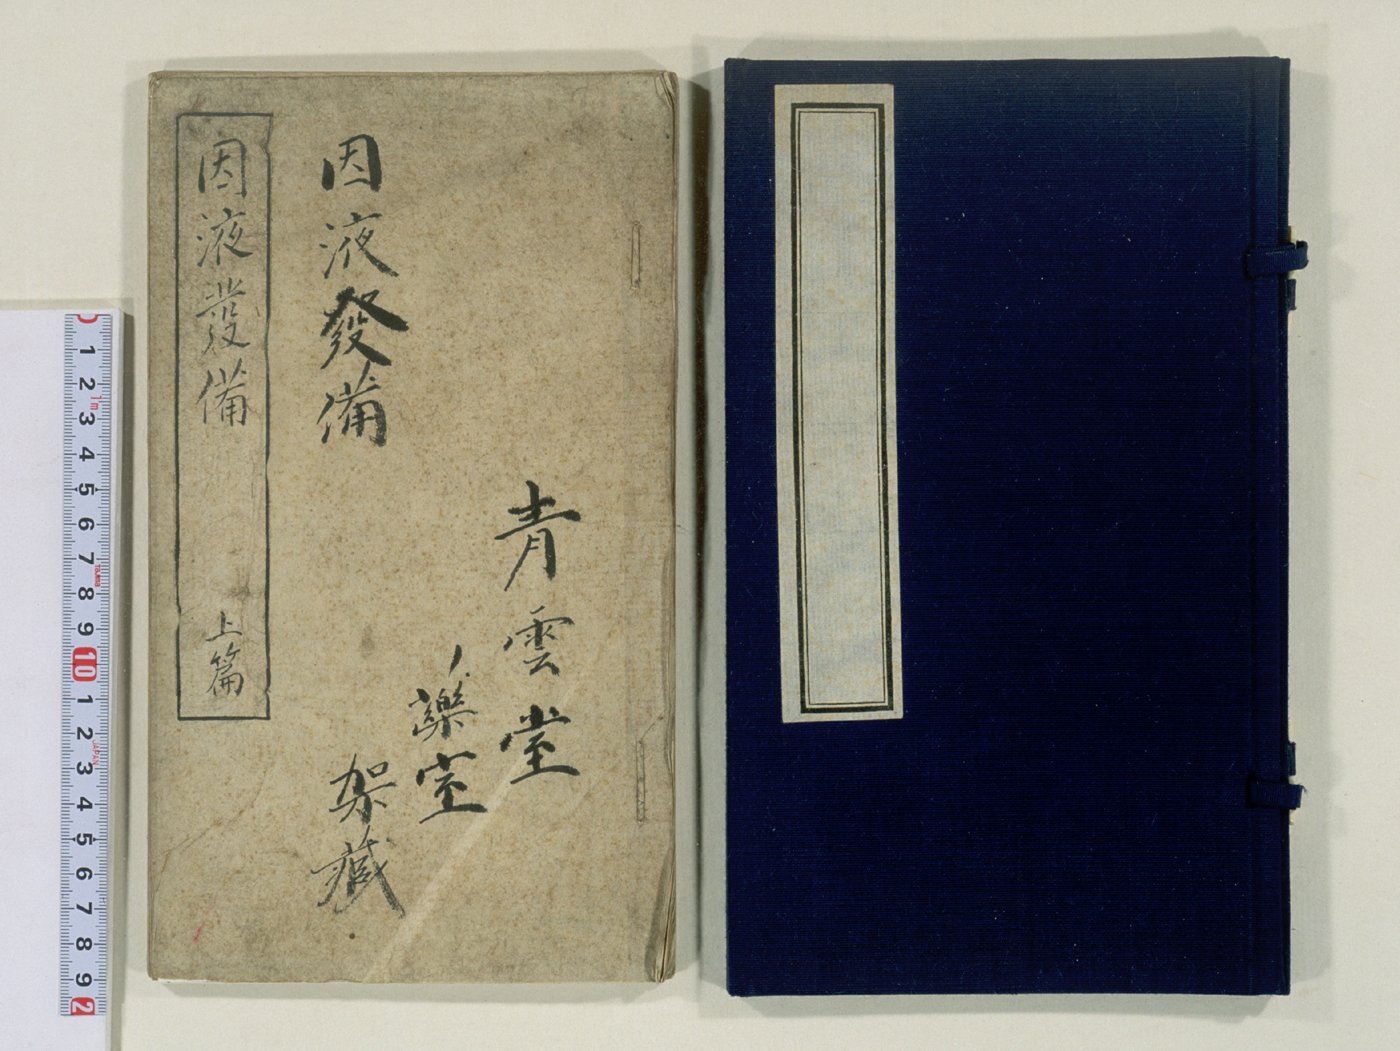 因液發備
上篇
因液發備
青雲堂
藥室
架藏
0 1 2 3 4 5 6 7 8 9 10 1 2 3 4 5 6 7 8 9 2
1m
JAPAN